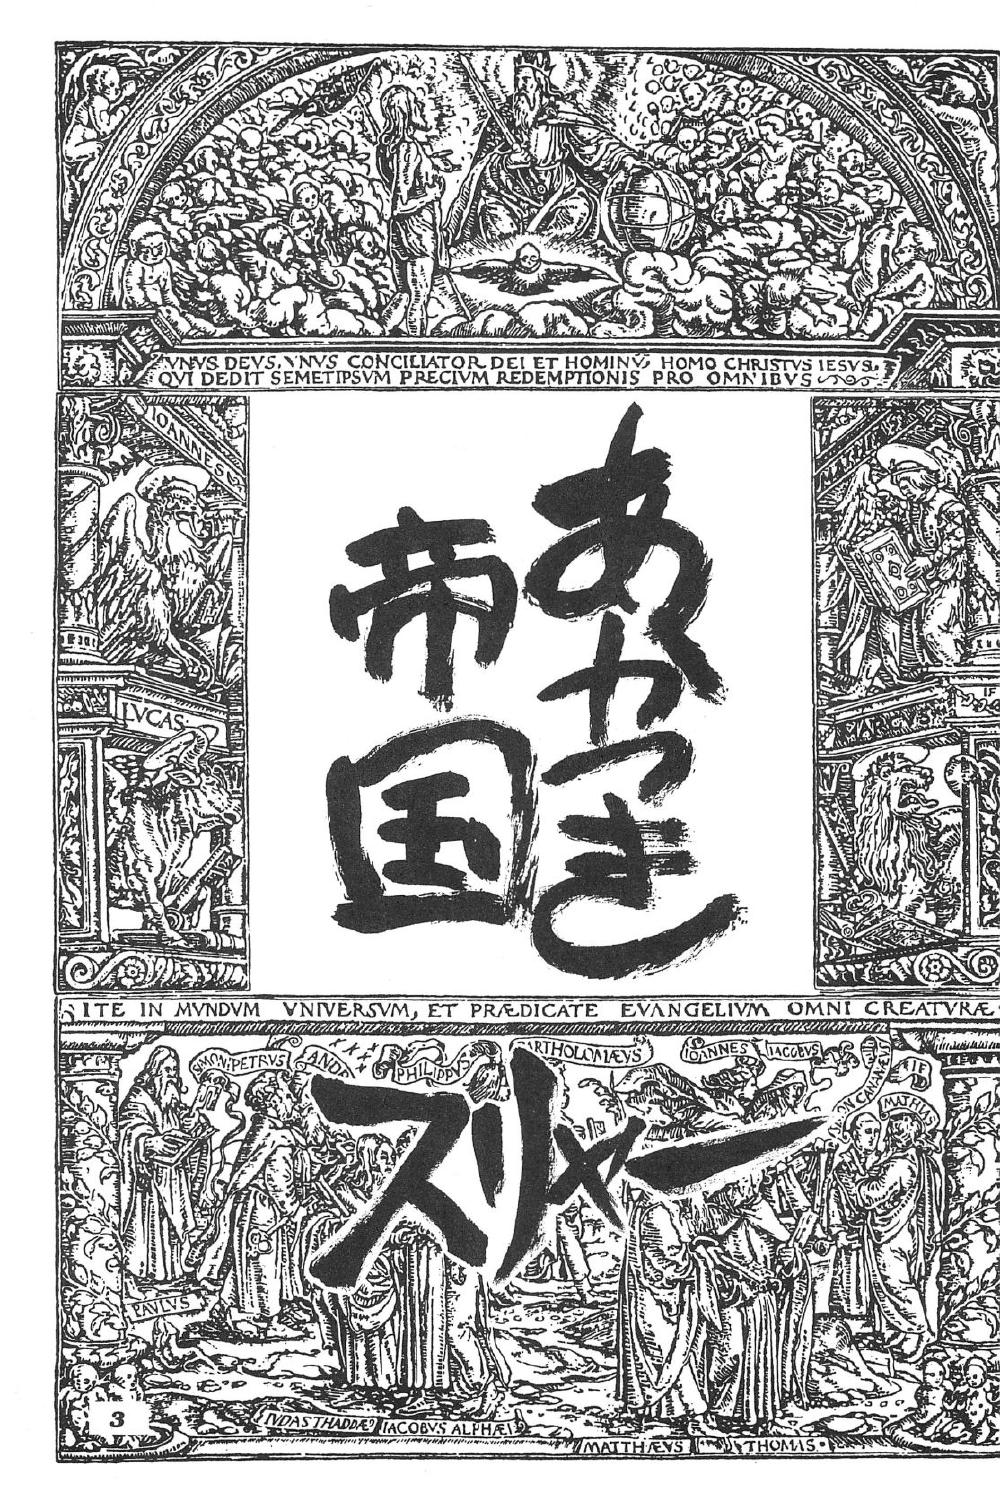 VNVS DEVS, VNVS CONCILIATOR DEI ET HOMINV̄, HOMO CHRISTVS IESVS,
QVI DEDIT SEMETIPSVM PRECIVM REDEMPTIONIS PRO OMNIBVS
IOANNES
あかつき
帝国
LVCAS
MARCVS
ITE IN MVNDVM VNIVERSVM, ET PRÆDICATE EVANGELIVM OMNI CREATVRÆ
SIMON PETRVS
PHILIPPVS
BARTHOLOMÆVS
IOANNES
IACOBVS
スリャー
PAVLVS
3
IVDAS THADDÆ9
IACOBVS ALPHÆI
MATTHÆVS
THOMAS